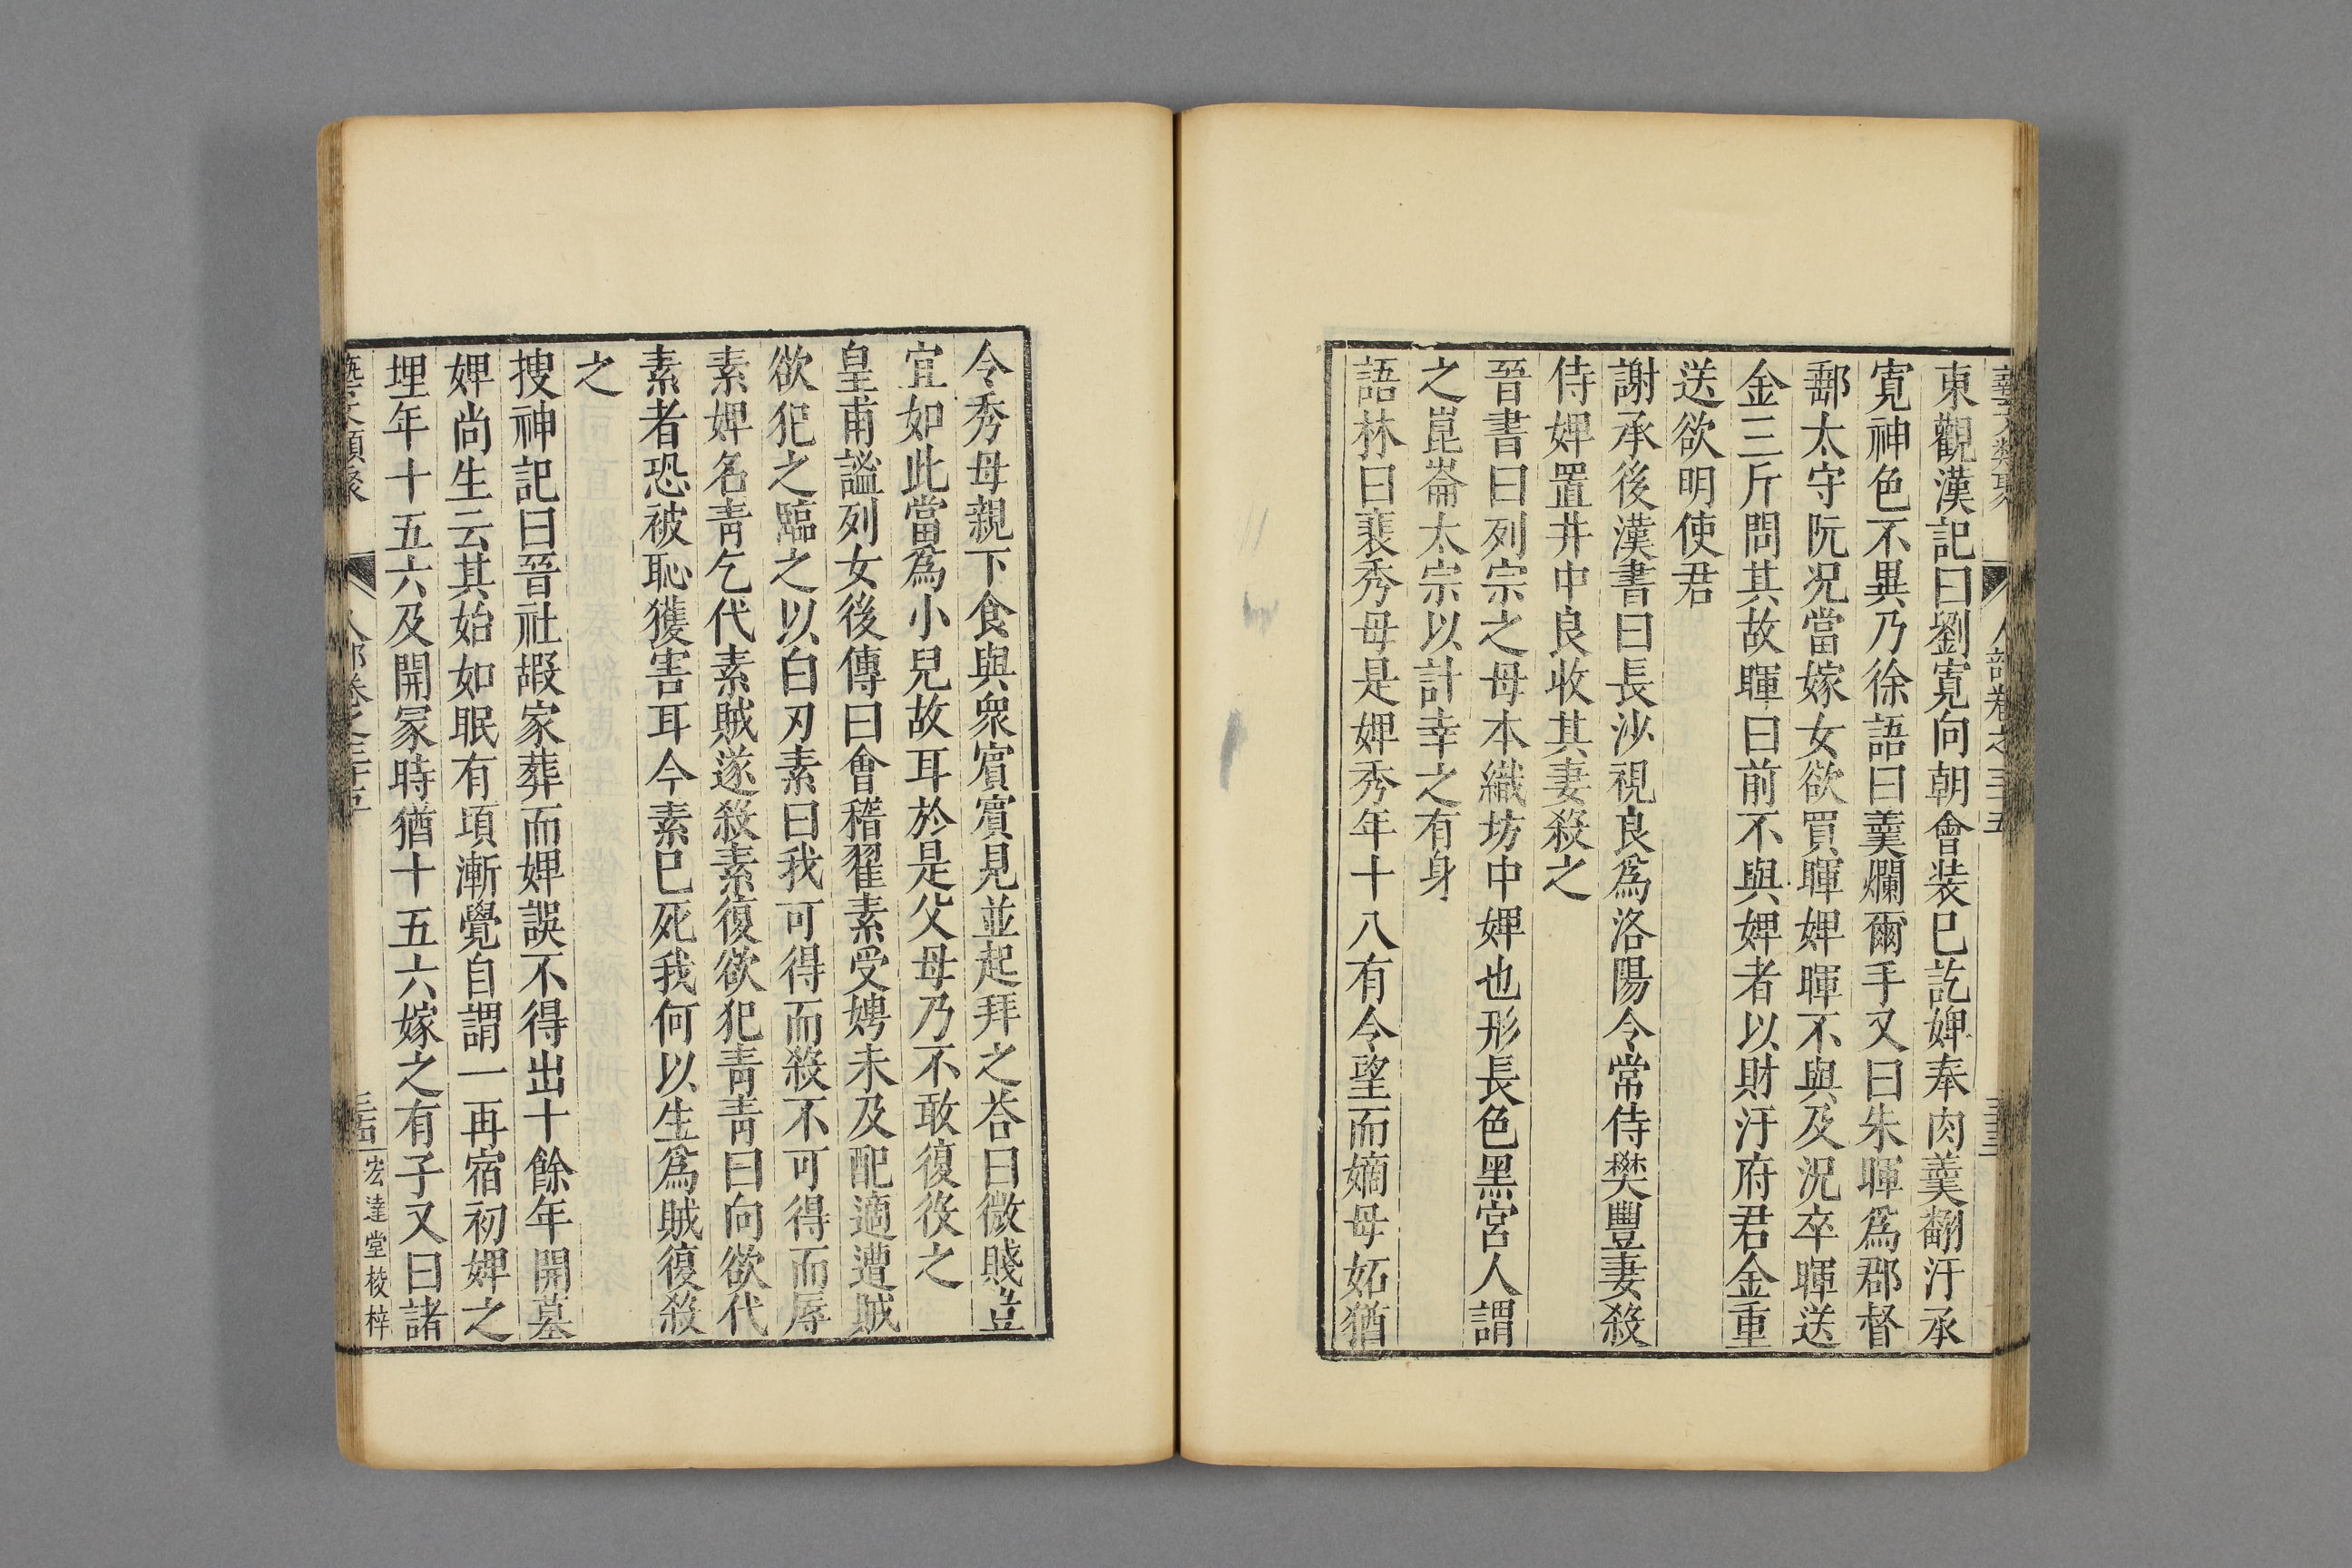 東觀漢記曰劉寛向朝會装已訖婢奉肉羹翻汙承
寛神色不異乃徐語曰羹爛爾手又曰朱暉爲郡督
鄱太守阮况當嫁女欲買暉婢暉不與及況卒暉送
金三斤問其故暉曰前不與婢者以財汙府君金重
送欲明使君
謝承後漢書曰長沙視良爲洛陽令常侍樊豐妻殺
侍婢置井中良收其妻殺之
晉書曰列宗之母本織坊中婢也形長色黑宮人謂
之崑崙太宗以計幸之有身
語林曰裴秀母是婢秀年十八有令望而嫡母妬猶
令秀母親下食與衆賓賓見並起拜之荅曰微賤豈
宜如此當爲小兒故耳於是父母乃不敢復役之
皇甫謐列女後傳曰會稽翟素受娉未及配適遭賊
欲犯之臨之以白刃素曰我可得而殺不可得而辱
素婢名青乞代素賊遂殺素復欲犯青青曰向欲代
素者恐被恥獲害耳今素已死我何以生爲賊復殺
之
搜神記曰晉社嘏家葬而婢誤不得出十餘年開墓
婢尚生云其始如眠有頃漸覺自謂一再宿初婢之
埋年十五六及開冢時猶十五六嫁之有子又曰諸
宏達堂校梓